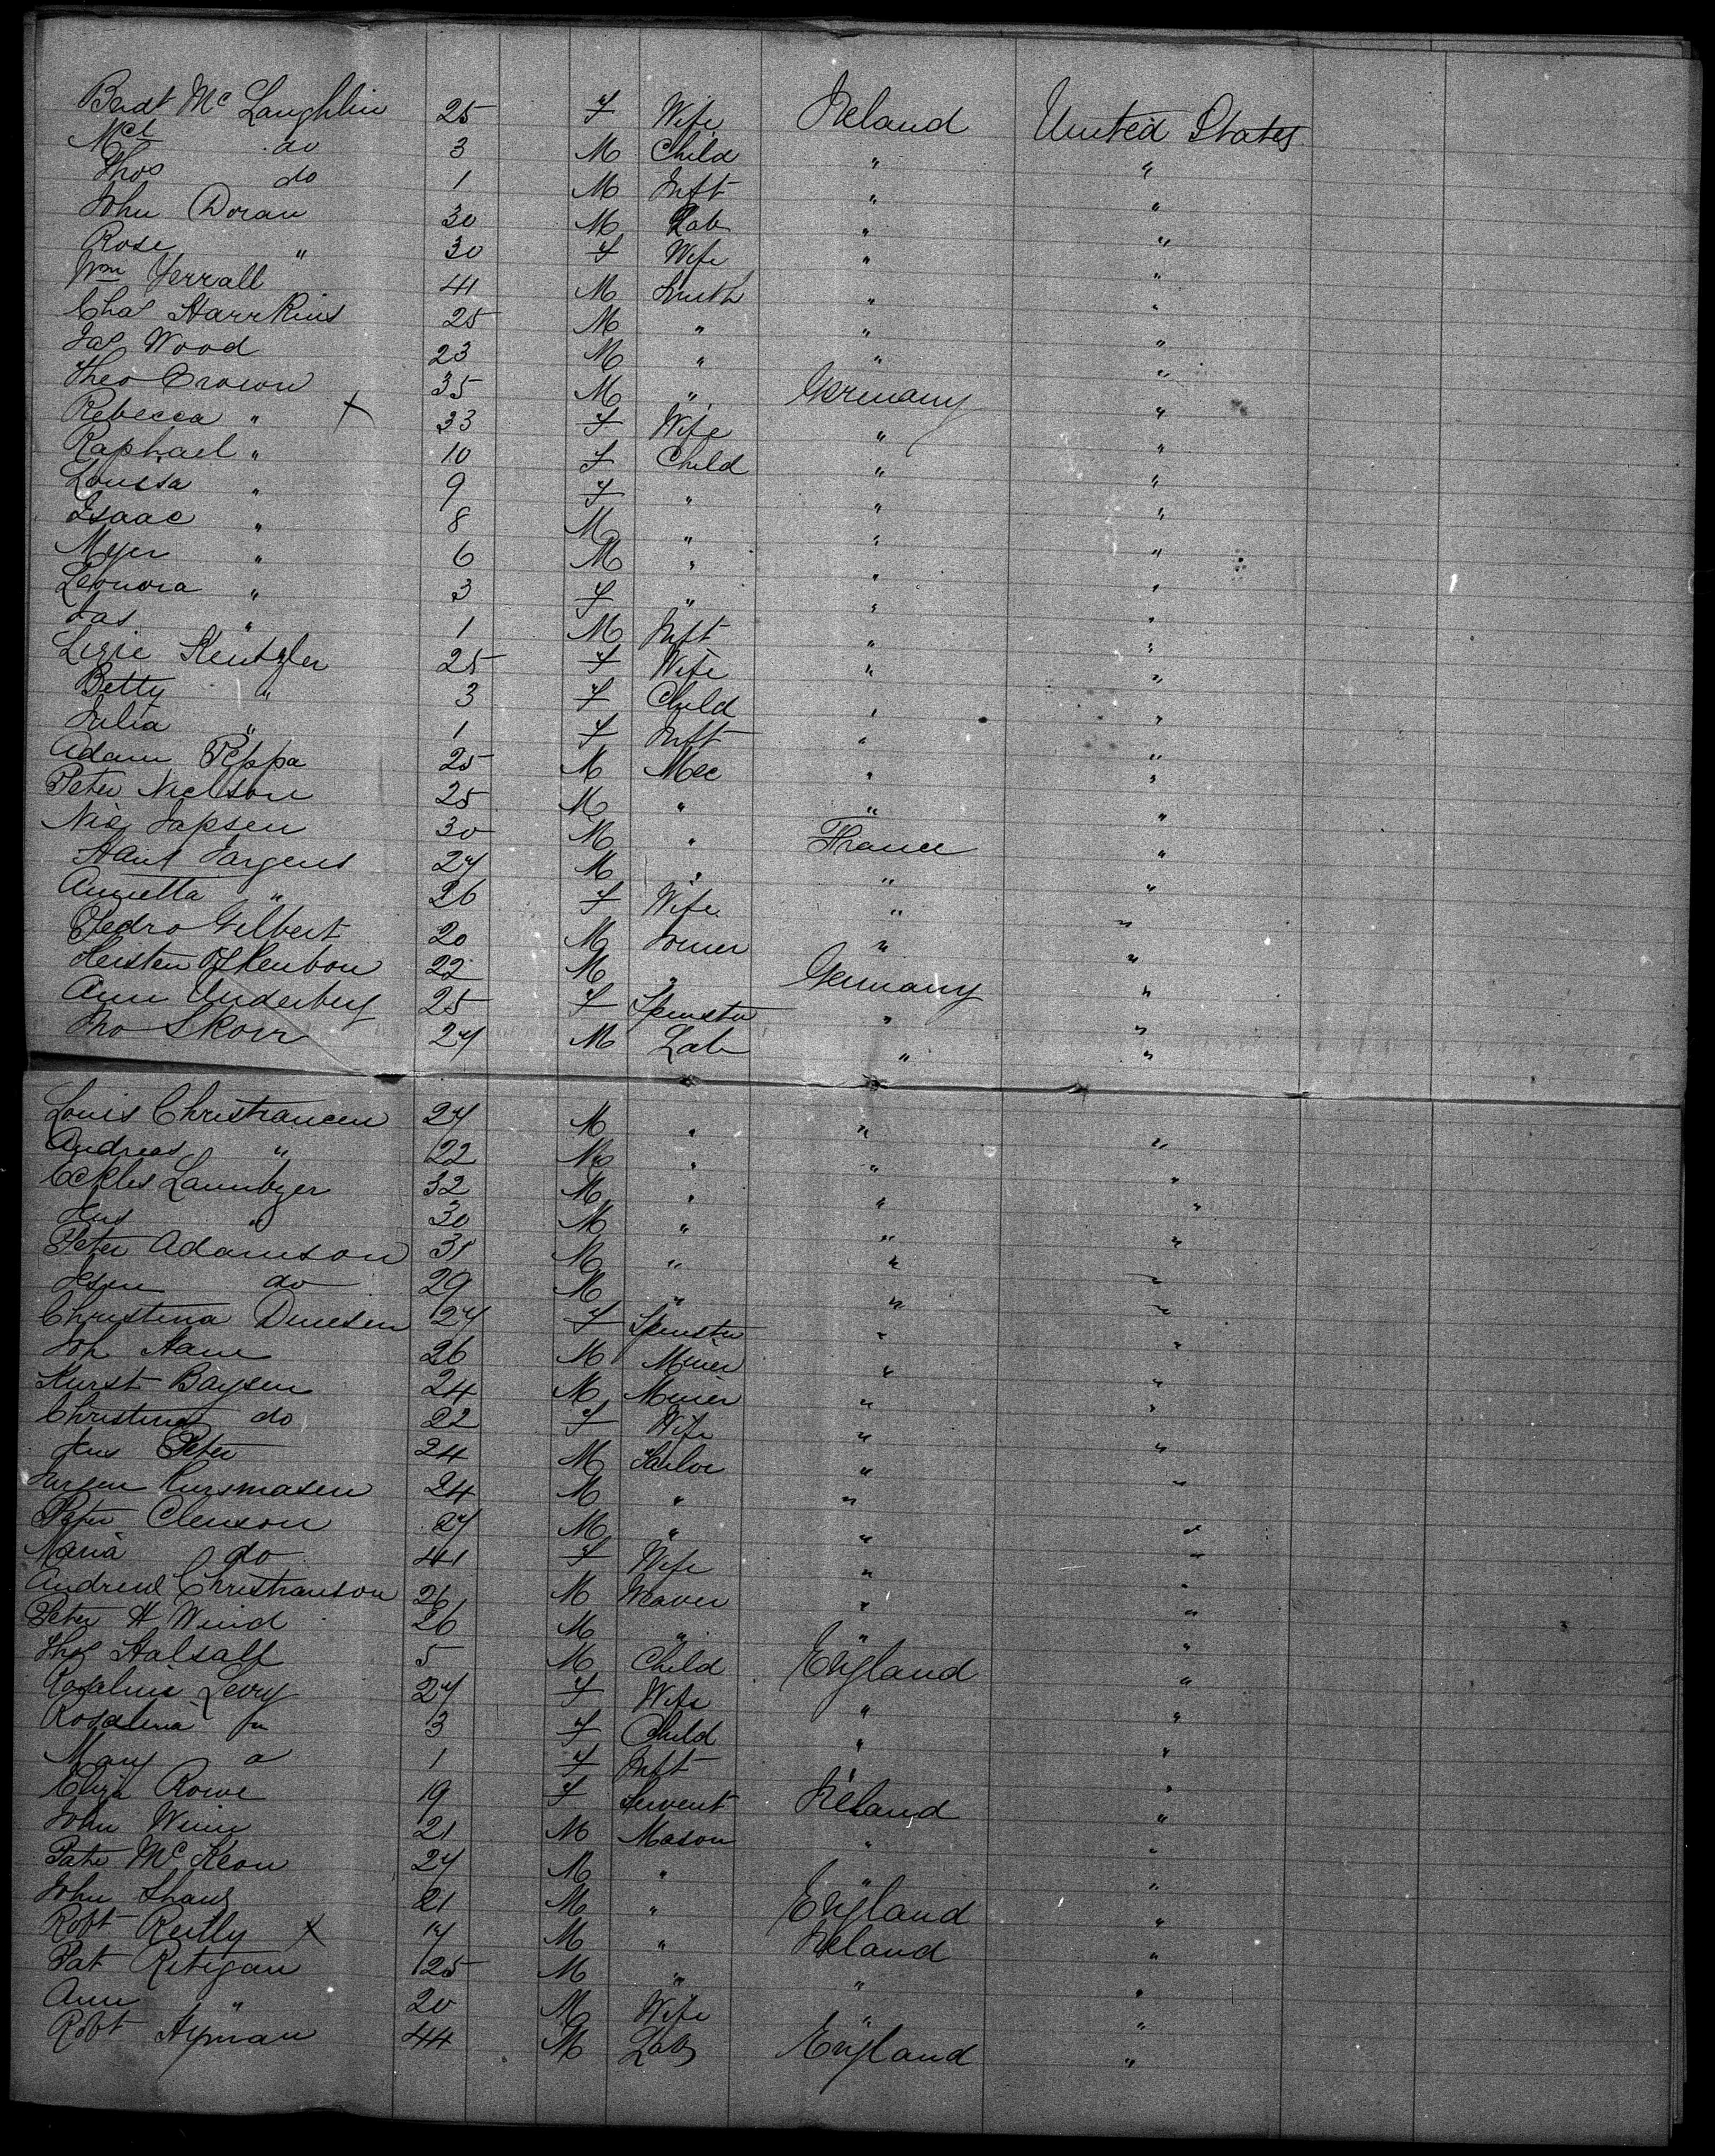 Bridt McLaughlin 25 F Wife Ireland United States
Mct do 3 M Child " "
Thos do 1 M Inft " "
John Doran 30 M Lab " "
Rose " 30 F Wife " "
Wm Yerrall 41 M Smith " "
Chas Harrkins 25 M " " "
Jas Wood 23 M " " "
Theo Crown 35 M " Germany "
Rebecca " X 33 F Wife " "
Raphael " 10 F Child " "
Louisa " 9 F " " "
Isaac " 8 M " " "
Myer " 6 M " " "
Leonora " 3 F " " "
Jas " 1 M Inft " "
Lizie Kentzler 25 F Wife " "
Betty " 3 F Child " "
Julia " 1 F Inft " "
Adam Peppa 25 M Mec " "
Peter Nielson 25 M " " "
Nis Japsen 30 M " France "
Hans Jargens 27 M " " "
Annetta " 26 F Wife " "
Pedro Gilbert 20 M Joiner " "
Kersten 22 M " Germany "
Ann Underberg 25 F Spinster " "
Jno Skorr 27 M Lab " "
Louis Christiancen 27 M " " "
Andreas " 22 M " " "
Eckles Launbzer 32 M " " "
Jens " 30 M " " "
Peter Adamson 31 M " " "
Jsen do 29 M " " "
Christina Dinesen 27 F Spinster " "
Joh Hane 26 M Miner " "
Kurst Baysen 24 M Miner " "
Christina do 22 F Wife " "
Jens Peter 24 M Tailor " "
Jurgen Kursmasen 24 M " " "
Peter Clenson 27 M " " "
Maria do 41 F Wife " "
Andrew Christianson 26 M Weaver " "
Peter H Wind 26 M " " "
Thos Halsall 5 M Child England "
Rosaline Levy 27 F Wife " "
Rosalina 3 F Child " "
Mary 1 F Inft "
Eliza Rowe 19 F Servent Ireland "
John Winn 21 M Mason " "
Pate McKeon 27 M " " "
John Shaw 21 M " England "
Robt Reilly X 17 M " Ireland "
Pat Ritigan 25 M " " "
Ann " 20 M Wife " "
Robt Hyman 44 M Lab England "